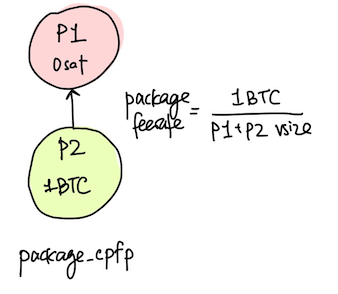 P1
0sat
P2
1BTC
package feerate = 1BTC / P1+P2 vsize
package_cpfp